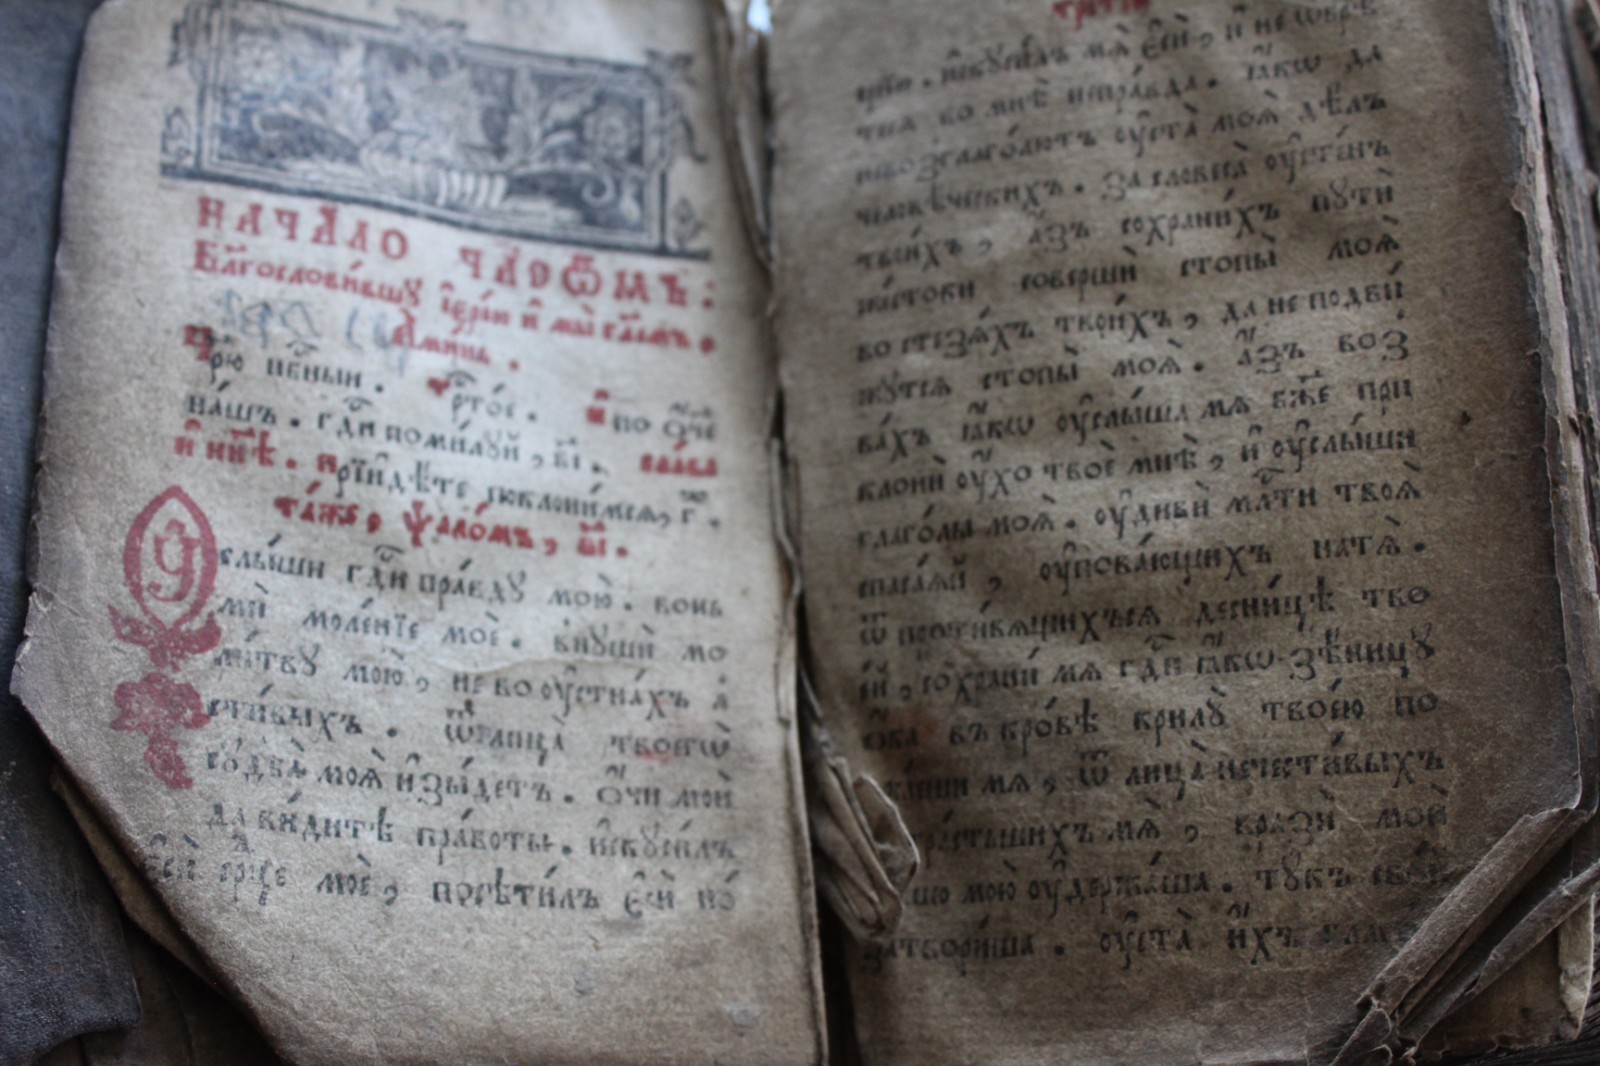 НАЧА́ЛО ЧАСѠ́МЪ:
Бл҃гослови́вшꙋ і҆ере́ю и҆ мы̀ гл҃емъ.
А҆ми́нь.
Цр҃ю̀ нб҃ный. трⷭ҇то́е. и҆ по ѻ҆́ч҃е
на́шъ. гдⷭ҇и поми́лꙋй, в҃і. сла́ва
и҆ нн҃ѣ. прїиди́те поклони́мсѧ, г҃.
та́же, ѱало́мъ, ѕ҃і.
Оу҆слы́ши гдⷭ҇и пра́вдꙋ мою̀. вонь
мѝ моле́нїе моѐ. внꙋшѝ мо
ли́твꙋ мою̀, не во оу҆стна́хъ л
сти́выхъ. ѿ лица̀ твоегѡ̀
сꙋдба̀ моѧ̀ и҆зы́детъ. ѻ҆́чи моѝ
да ви́дитѣ пра́воты. и҆скꙋси́лъ
є҆сѝ срⷣце моѐ, посѣти́лъ є҆сѝ но́
трети
щїю. и҆скꙋси́лъ мѧ̀ є҆сѝ, и҆ не ѡ҆брѣ
тесѧ во мнѣ̀ непра́вда. ꙗ҆́кѡ да
невозглаго́лютъ оу҆ста̀ моѧ̀ дѣ́лъ
человѣ́ческихъ. за словеса̀ оу҆сте́нъ
твои́хъ, а҆́зъ сохрани́хъ пꙋтѝ
же́стоки соверши̏ стопы̀ моѧ̀
во стезѧ́хъ твои́хъ, да не подви́
жꙋтсѧ стопы̀ моѧ̀. а҆́зъ воз
ва́хъ ꙗ҆́кѡ оу҆слы́ша мѧ бж҃е при
клонѝ оу҆́хо твоѐ мнѣ̀, и҆ оу҆слы́ши
глаго́лы моѧ̀. оу҆дивѝ млⷭ҇ти твоѧ̀
спаса́ѧй, оу҆пова́ющихъ натѧ̀.
ѿ проти́вѧщихъсѧ десни́цѣ тво
е́й, сохранѝ мѧ гдⷭ҇и ꙗ҆́кѡ зѣ́ницꙋ
ѻ҆́ка въ кро́вѣ крилꙋ̀ твое́ю по
кры́еши мѧ, ѿ лица̀ нечести́выхъ
стра́стьшихъ мѧ̀, вразѝ моѝ
дш҃ю мою̀ оу҆держа́ша. тꙋ́къ свой
затвори́ша. оу҆ста̀ и҆́хъ глаго